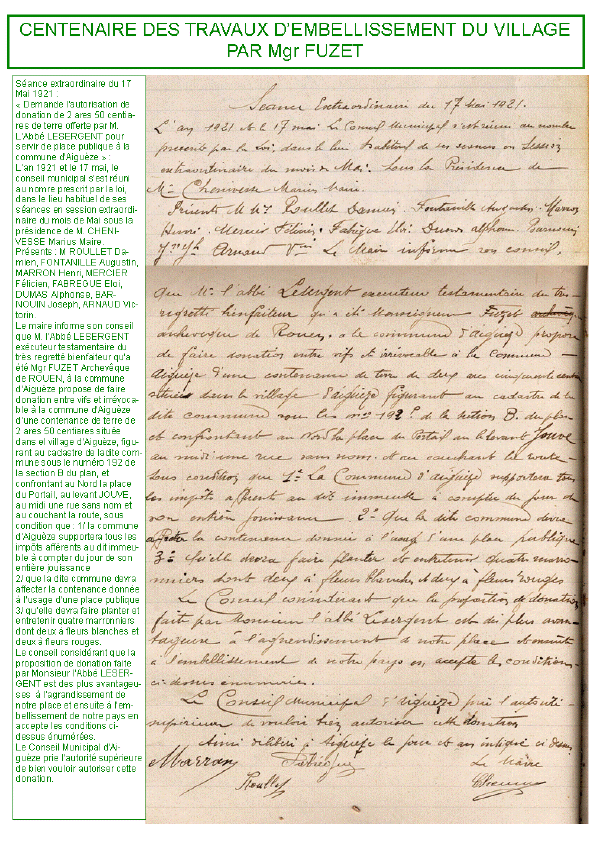 CENTENAIRE DES TRAVAUX D'EMBELLISSEMENT DU VILLAGE
PAR Mgr FUZET
Séance extraordinaire du 17
Mai 1921 :
« Demande l'autorisation de
donation de 2 ares 50 centia-
res de terre offerte par M.
L'Abbé LESERGENT pour
servir de place publique à la
commune d'Aiguèze » :
L'an 1921 et le 17 mai, le
conseil municipal s'est réuni
au nombre prescrit par la loi,
dans le lieu habituel de ses
séances en session extraordi-
naire du mois de Mai sous la
présidence de M. CHENI-
VESSE Marius Maire.
Présents : M ROULLET Da-
mien, FONTANILLE Augustin,
MARRON Henri, MERCIER
Félicien, FABREGUE Eloi,
DUMAS Alphonse, BAR-
NOUIN Joseph, ARNAUD Vic-
torin.
Le maire informe son conseil
que M. l'Abbé LESERGENT
exécuteur testamentaire du
très regretté bienfaiteur qu'a
été Mgr FUZET Archevêque
de ROUEN, à la commune
d'Aiguèze propose de faire
donation entre vifs et irrévoca-
ble à la commune d'Aiguèze
d'une contenance de terre de
2 ares 50 centiares située
dans el village d'Aiguèze, figu-
rant au cadastre de la dite com-
mune sous le numéro 192 de
la section B du plan, et
confrontant au Nord la place
du Portail, au levant JOUVE,
au midi une rue sans nom et
au couchant la route, sous
condition que : 1/ la commune
d'Aiguèze supportera tous les
impôts afférents au dit immeu-
ble à compter du jour de son
entière jouissance
2/ que la dite commune devra
affecter la contenance donnée
à l'usage d'une place publique
3/ qu'elle devra faire planter et
entretenir quatre marronniers
dont deux à fleurs blanches et
deux à fleurs rouges.
Le conseil considérant que la
proposition de donation faite
par Monsieur l'Abbé LESER-
GENT est des plus avantageu-
ses à l'agrandissement de
notre place et ensuite à l'em-
bellissement de notre pays en
accepte les conditions ci-
dessus énumérées.
Le Conseil Municipal d'Ai-
guèze prie l'autorité supérieure
de bien vouloir autoriser cette
donation.
Séance Extraordinaire du 17 Mai 1921.
L'an 1921 et le 17 mai, le Conseil Municipal s'est réuni au nombre
prescrit par la loi, dans le lieu habituel de ses séances en session
extraordinaire du mois de Mai. Sous la Présidence de
Mr Chenivesse Marius Maire.
Présents M Mrs Roullet Damien, Fontanille Augustin, Marron
Henri, Mercier Félicien, Fabrègue Eloi, Dumas Alphonse, Barnouin
Jph, Arnaud Vin Le Maire informe son conseil,
Que Mr l'abbé Lesergent executeur testamentaire du très
regretté bienfaiteur qu'a été Monseigneur Fuzet
archevêque de Rouen, a la commune d'aiguèze propose
de faire donation entre vifs et irrévocable à la Commune
Aiguèze d'une contenance de terre de deux ares cinquante centi
située dans le village d'aiguèze figurant au cadastre de la
dite commune sous les nos 192 P. de la section B. du plan
et confrontant au Nord la place du Portail au levant Jouve
au midi une rue sans nom. et au couchant la route
sous condition que 1° La Commune d'aiguèze supportera tous
les impôts afférent au dit immeuble à compter du jour de
son entière jouissance 2° Que la dite commune devra
affecter la contenance donnée à l'usage d'une place publique
3° qu'elle devra faire planter et entretenir quatre marro-
nniers dont deux à fleurs blanches et deux à fleurs rouges
Le Conseil considerant que la proposition de donation
faite par Monsieur l'abbé Lesergent est des plus avan-
tageuse à l'agrandissement de notre place et ensuite
à l'embellissement de notre pays en accepte les conditions
ci-dessus enumérées.
Le Conseil Municipal d'Aiguèze prie l'autorité
supérieure de vouloir bien autoriser cette donation
Ainsi délibéré à Aiguèze le jour et an indiqué ci dessus
Marron Fabrègue Le Maire
Roullet Chenivesse